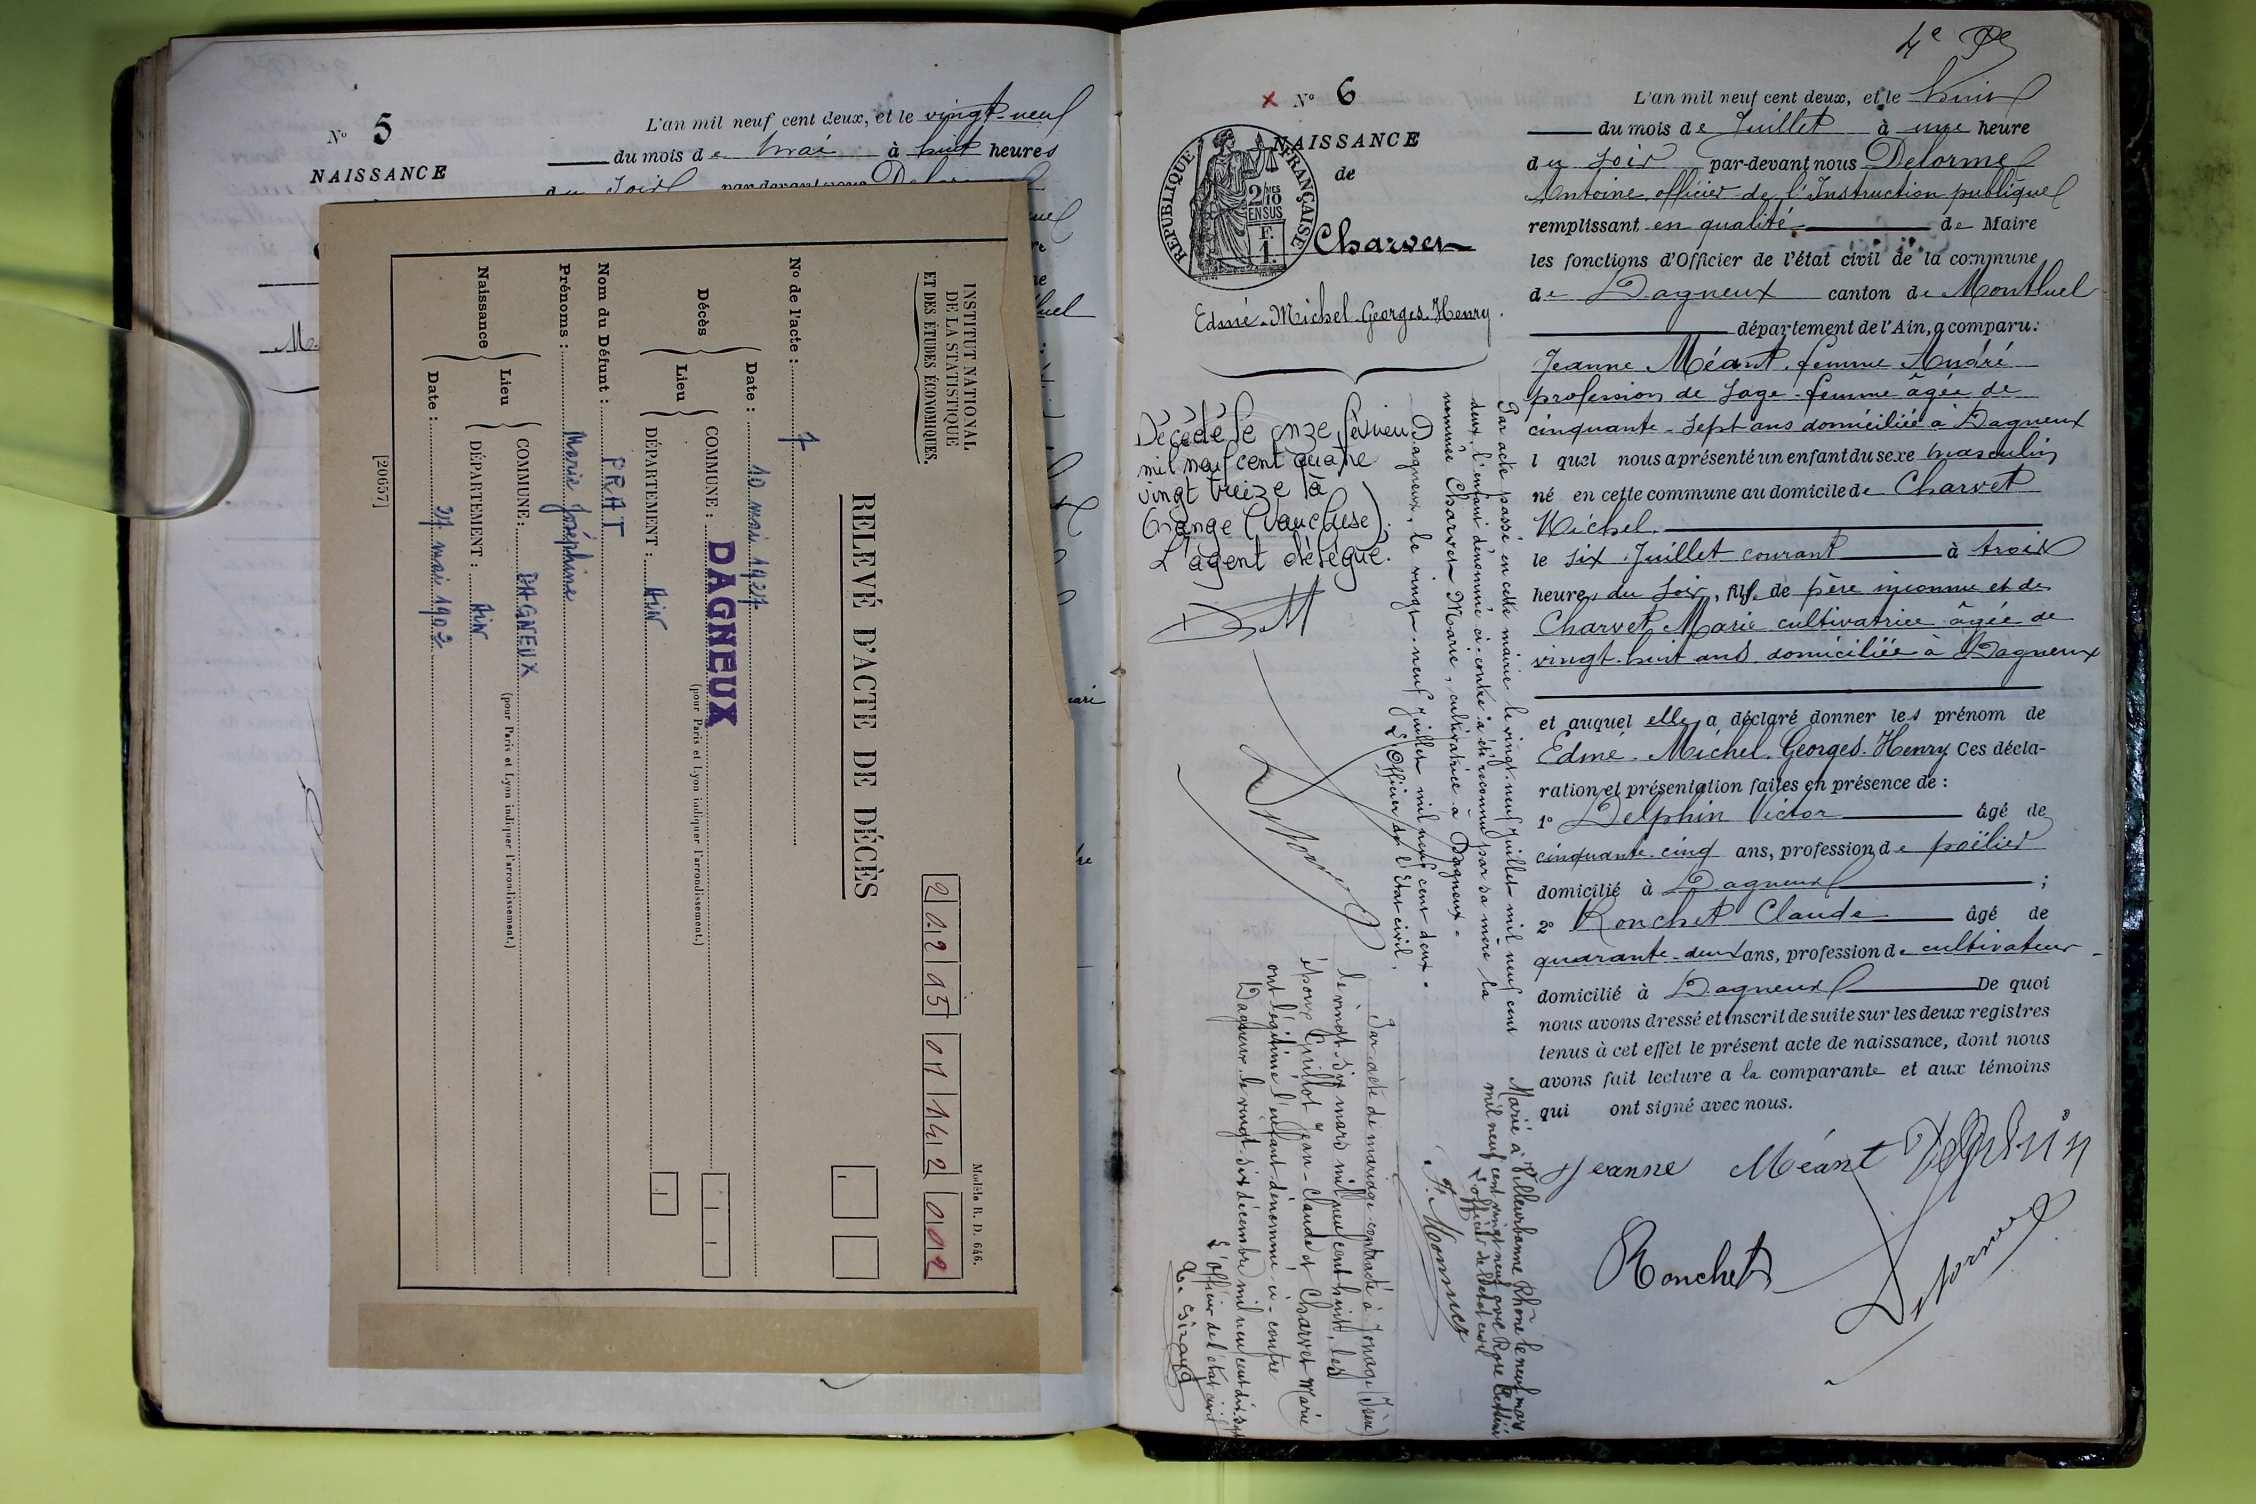 N° 5
NAISSANCE
L'an mil neuf cent deux, et le vingt-neuf
du mois de Mai à huit heures
du soir par-devant nous
INSTITUT NATIONAL
DE LA STATISTIQUE
ET DES ÉTUDES ÉCONOMIQUES.
Modèle R. D. 646.
RELEVÉ D'ACTE DE DÉCÈS
N° de l'acte : 7
Décès
Date : 10 mai 1927
Lieu
COMMUNE : DAGNEUX
(pour Paris et Lyon indiquer l'arrondissement.)
DÉPARTEMENT : AIN
Nom du Défunt : PRAT
Prénoms : Marie Joséphine
Naissance
Lieu
COMMUNE : DAGNEUX
(pour Paris et Lyon indiquer l'arrondissement.)
DÉPARTEMENT : AIN
Date : 27 mai 1902
[20657]
4e
N° 6
NAISSANCE
de
RÉPUBLIQUE FRANÇAISE
2/10
EN SUS
F.
1.
Charvet
Edmé-Michel-Georges-Henry.
Décédé le onze février
mil neuf cent quatre
vingt treize à
Orange (Vaucluse).
L'agent délégué.
Par acte passé en cette mairie le vingt-neuf juillet mil neuf cent
deux, l'enfant dénommé ci-contre a été reconnu par sa mère la
nommée Charvet Marie, cultivatrice à Dagneux.
Dagneux, le vingt-neuf juillet mil neuf cent deux.
L'Officier de l'Etat civil,
Delorme
Par acte de mariage contracté à Jonage (Isère)
le vingt-six mars mil neuf cent huit, les
époux Guillot Jean-Claude et Charvet Marie
ont légitimé l'enfant dénommé ci-contre
Dagneux le vingt-six décembre mil neuf cent dix-sept
L'officier de l'état civil
Marié à Villeurbanne Rhône le neuf mars
mil neuf cent vingt neuf avec Rose
L'officier de l'état civil
L'an mil neuf cent deux, et le huit
du mois de Juillet à une heure
du soir par-devant nous Delorme
Antoine officier de l'Instruction publique
remplissant en qualité de Maire
les fonctions d'Officier de l'état civil de la commune
de Dagneux canton de Montluel
département de l'Ain, a comparu :
Jeanne Méant femme André
profession de sage-femme âgée de
cinquante-sept ans domiciliée à Dagneux
l quel nous a présenté un enfant du sexe masculin
né en cette commune au domicile de Charvet
Michel.
le six Juillet courant à trois
heures du soir, fils de père inconnu et de
Charvet Marie cultivatrice âgée de
vingt-huit ans domiciliée à Dagneux
et auquel elle a déclaré donner les prénom de
Edmé-Michel-Georges-Henry. Ces décla-
ration et présentation faites en présence de :
1° Delphin Victor âgé de
cinquante-cinq ans, profession de poëlier
domicilié à Dagneux ;
2° Ronchet Claude âgé de
quarante-deux ans, profession de cultivateur
domicilié à Dagneux De quoi
nous avons dressé et inscrit de suite sur les deux registres
tenus à cet effet le présent acte de naissance, dont nous
avons fait lecture a la comparante et aux témoins
qui ont signé avec nous.
Jeanne Méant Delphin
Ronchet Delorme